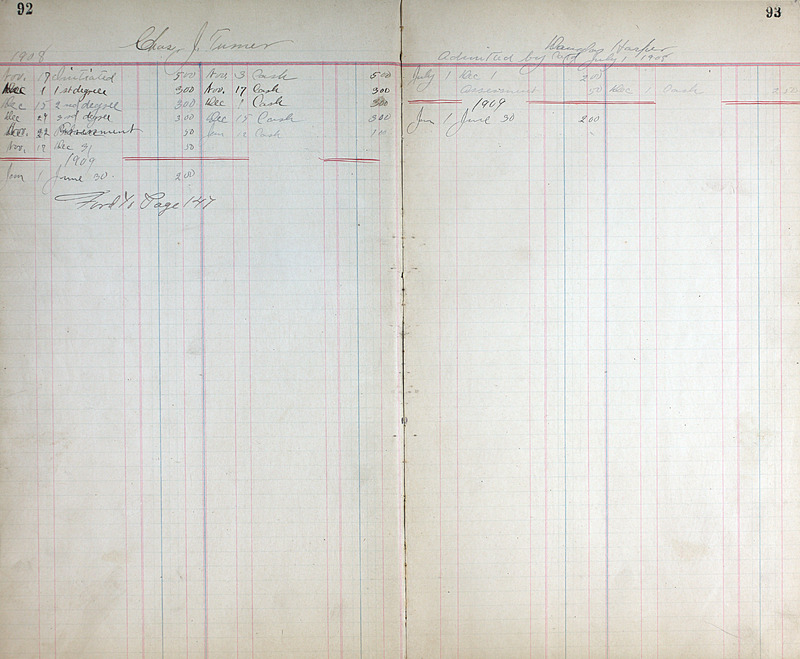 92
Chas. J. Turner
1908
Nov. 17 Initiated 5 00 Nov. 3 Cash 5 00
Dec 1 1st degree 3 00 Nov. 17 Cash 3 00
Dec 15 2nd degree 3 00 Dec 1 Cash 3 00
Dec 29 3rd degree 3 00 Dec 15 Cash 3 00
Nov. 22 Assessment 50 Jan 12 Cash 1 00
Nov. 17 Dec 31 50
1909
Jan 1 June 30 2 00
Ford To Page 147
93
Douglas Harper
Admitted by Card July 1 1908
July 1 Dec 1 2 00
Assessment 50 Dec 1 Cash 2 50
1909
Jan 1 June 30 2 00